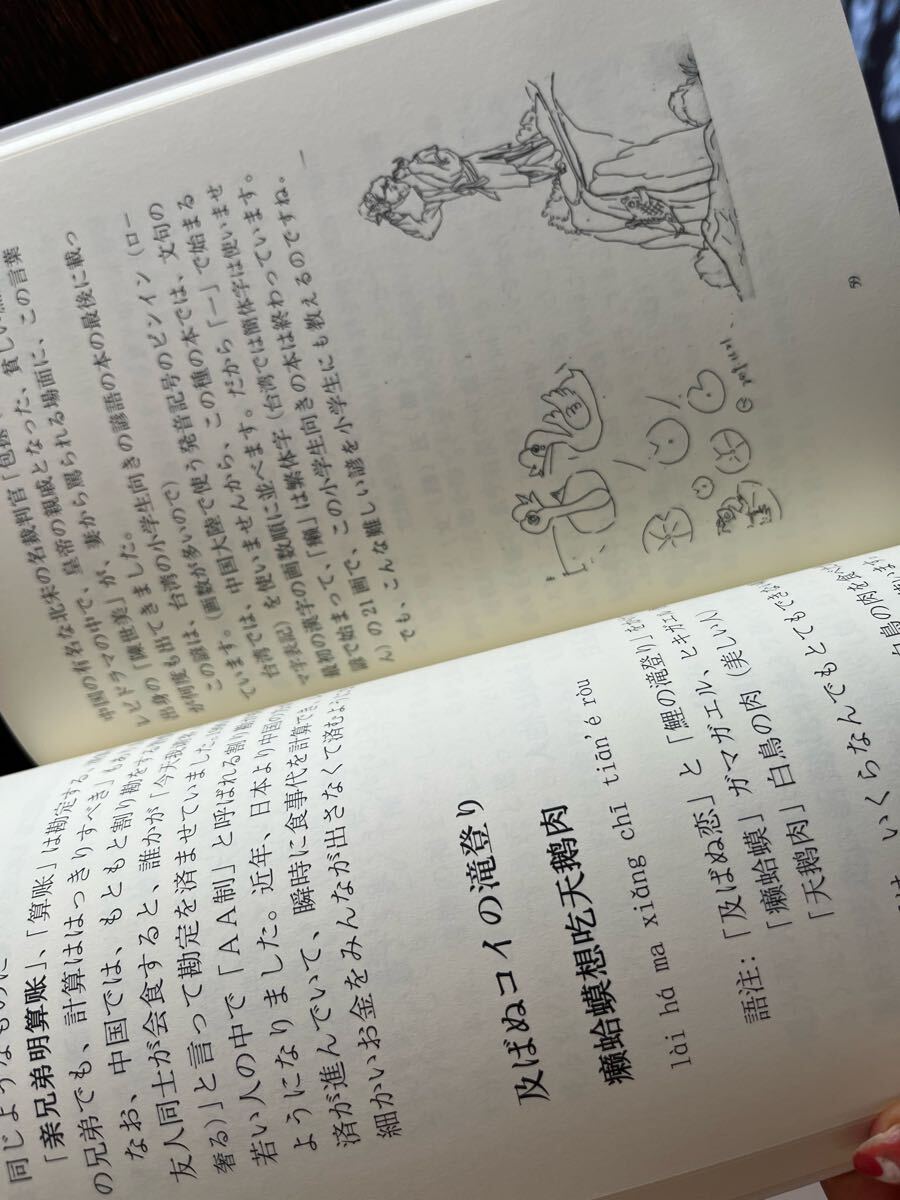 同じようなものに
「亲兄弟明算账」、「算账」は勘定する。
の兄弟でも、計算ははっきりすべき」
なお、中国では、もともと割り勘をする
友人同士が会食すると、誰かが「今天我
奢る)」と言って勘定を済ませていました。
若い人の中で「ＡＡ制」と呼ばれる割り勘
ようになりました。近年、日本より中国の
済が進んでいて、瞬時に食事代を計算でき
細かいお金をみんなが出さなくて済むように
及ばぬコイの滝登り
癞蛤蟆想吃天鹅肉
lài há ma xiǎng chī tiān'é ròu
「及ばぬ恋」と「鯉の滝登り」を
語注:「癞蛤蟆」ガマガエル、ヒキガエル
「天鹅肉」白鳥の肉(美しい
いくらなんでもとてもでき
白鳥の肉を食
中国の有名な北宋の名裁判官「包拯
レビドラマの中で、皇帝の親戚となった、貧しい
出身の「陳世美」が、妻から罵られる場面に、この言葉
が何度も出てきました。
この諺は、台湾の小学生向きの諺語の本の最後に載っ
ています。(画数が多いので)
台湾では、中国大陸で使う発音記号のピンイン(ロー
マ字表記)を使いませんから、この種の本では、文句の
最初の漢字の画数順に並べます。だから「一」で始まる
諺で始まって、「癩」は繁体字(台湾では簡体字は使いませ
ん)の21画で、この小学生向きの本は終わっています。
でも、こんな難しい諺を小学生にも教えるのですね。